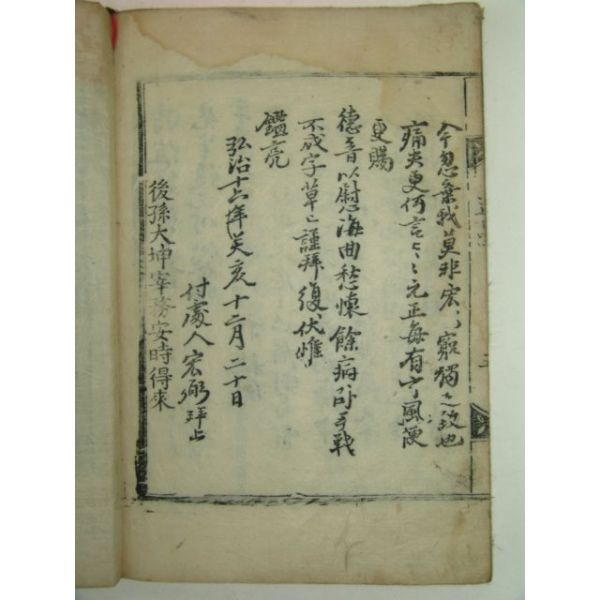 今忽棄我莫非宏〻窮獨之致也
痛矣更何言〻〻元正每有風便
更賜
德音以慰海曲愁懷餘病卧手戰
不成字草〻謹拜復伏惟
鑑亮
弘治十六年癸亥十二月二十日
付處人宏弼拜上
後孫大坤宰務安時得來